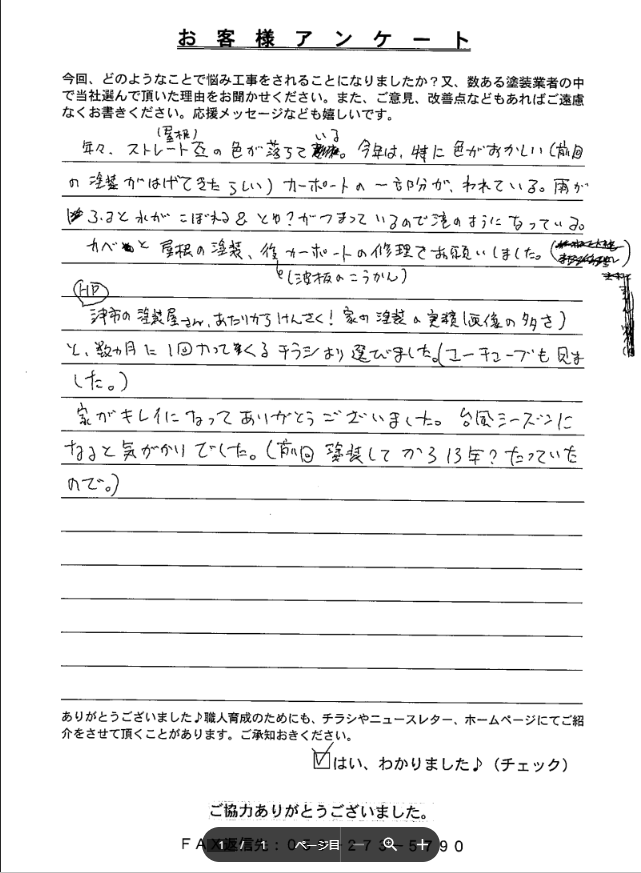 お客様アンケート
今回、どのようなことで悩み工事をされることになりましたか？又、数ある塗装業者の中
で当社選んで頂いた理由をお聞かせください。また、ご意見、改善点などもあればご遠慮
なくお書きください。応援メッセージなども嬉しいです。
(屋根)
いる
年々、ストレート瓦の色が落ちて。今年は、特に色がおかしい(前回
の塗装がはげてきたらしい)カーポートの一部分が、われている。雨が
ふると水がこぼれる&とゆ?がつまっているので滝のようになっている。
カベと屋根の塗装、後カーポートの修理でお願いしました。
(波板のこうかん)
HP
津市の塗装屋さん、あたりからけんさく!家の塗装の実績(画像の多さ)
と、数カ月に1回入ってくるチラシより選びました。(ユーチューブも見ま
した。)
家がキレイになってありがとうございました。台風シーズンに
なると気がかりでした。(前回塗装してから13年?たっていた
ので。)
ありがとうございました♪職人育成のためにも、チラシやニュースレター、ホームページにてご紹
介をさせて頂くことがあります。ご承知おきください。
はい、わかりました♪（チェック）
ご協力ありがとうございました。
FAX返信先：059-273-5790
ページ目 1 / 1